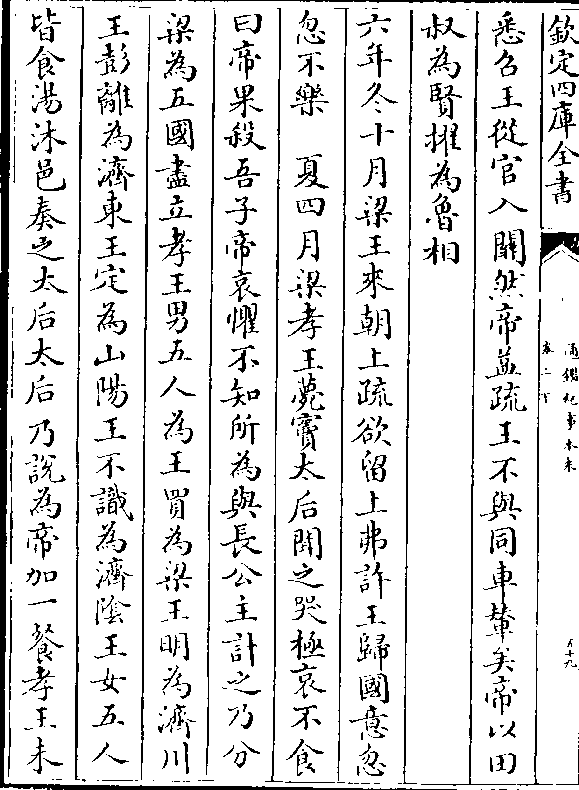 欽定四庫全書
通鑑紀事本末
五十九
悉召王從官入關然帝益疏王不與同車輦矣帝以田
叔為賢擢為魯相
六年冬十月梁王來朝上疏欲留上弗許王歸國意忽
忽不樂　夏四月梁孝王薨竇太后聞之哭極哀不食
曰帝果殺吾子帝哀懼不知所為與長公主計之乃分
梁為五國盡立孝王男五人為王買為梁王明為濟川
王彭離為濟東王定為山陽王不識為濟陰王女五人
皆食湯沐邑奏之太后太后乃說為帝加一餐孝王未